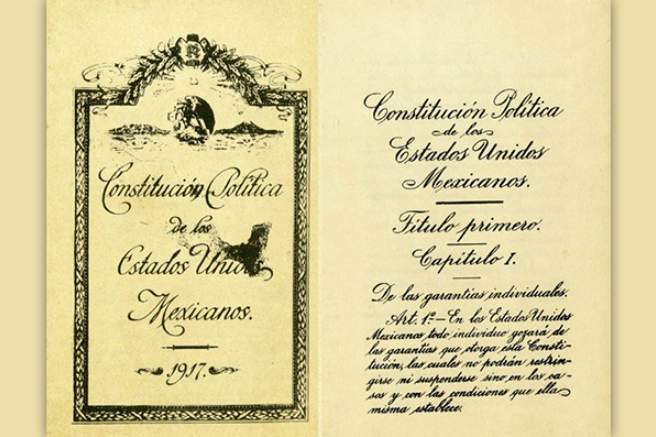 Constitución Política
de los
Estados Unidos
Mexicanos.
1917.
Constitución Política
de los
Estados Unidos
Mexicanos.
Titulo primero.
Capitulo I.
De las garantias individuales.
Art. 1º.- En los Estados Unidos
Mexicanos todo individuo gozará de
las garantias que otorga esta Consti-
tución, las cuales no podrán restrin-
girse ni suspenderse sino en los ca-
sos y con las condiciones que ella
misma establece.